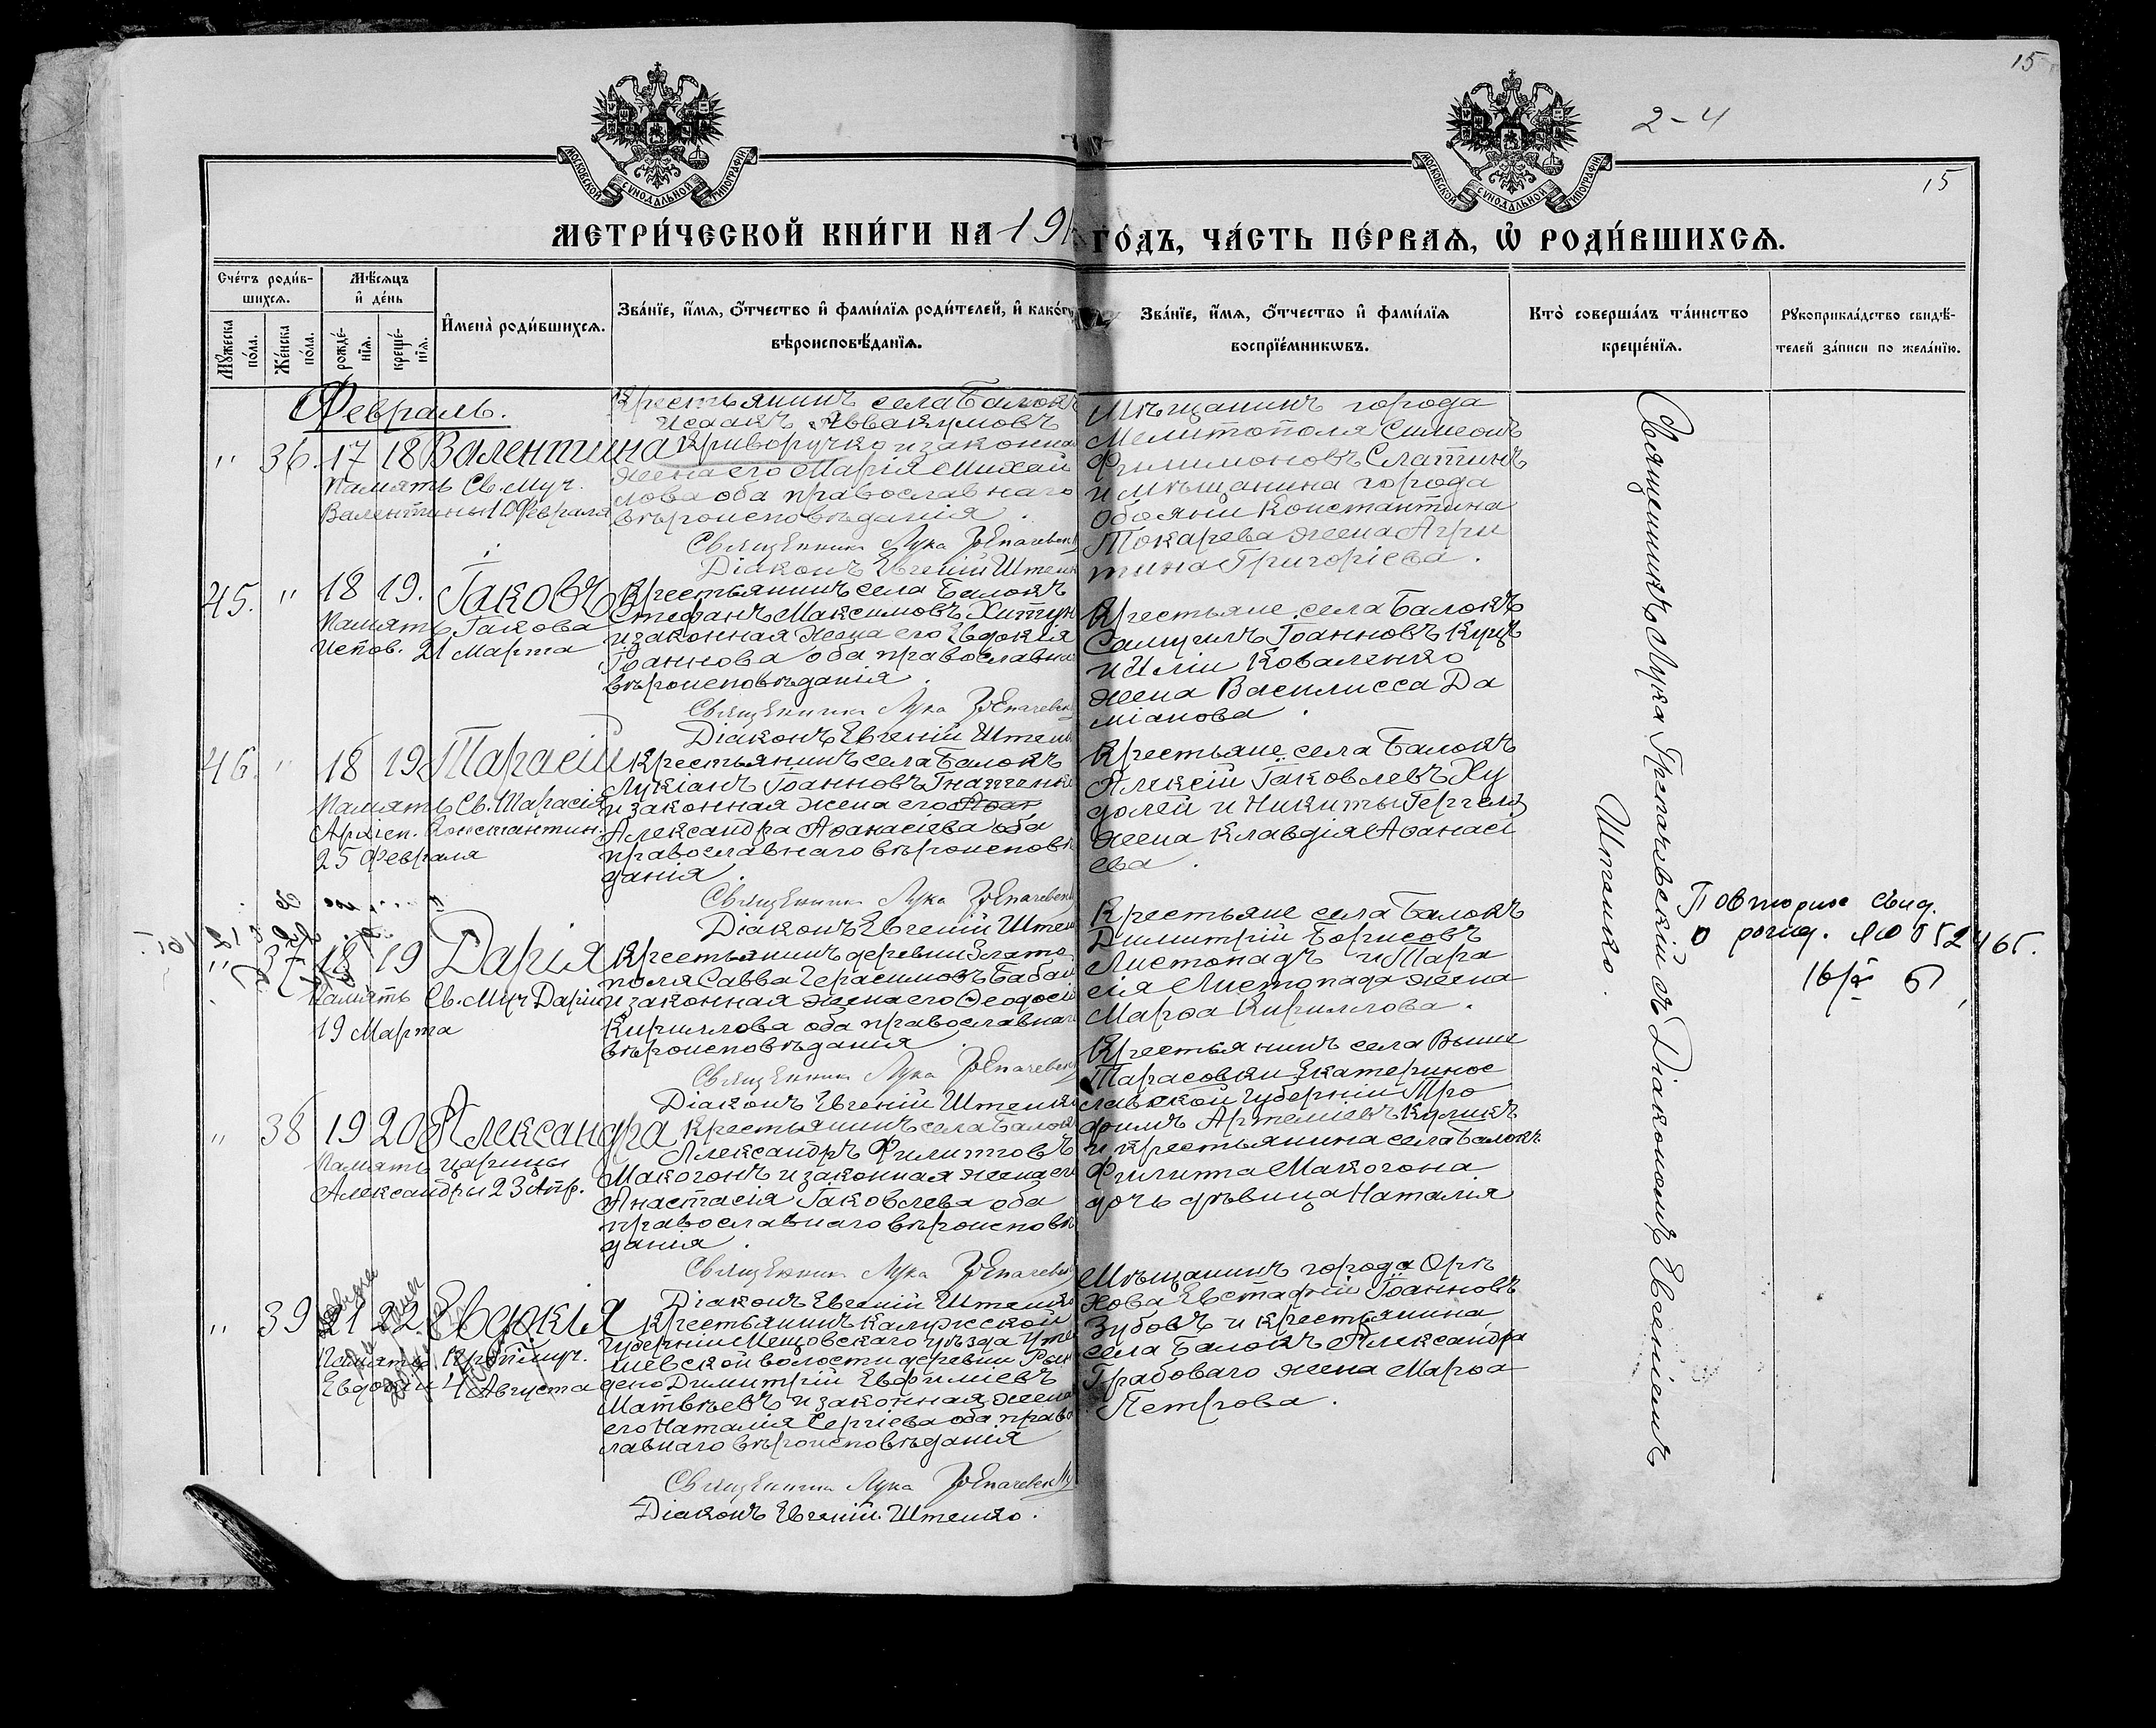 15
2-4
15
МОСКОВСКОЙ СУНОДАЛЬНОЙ ТИПОГРАФІИ
МОСКОВСКОЙ СУНОДАЛЬНОЙ ТИПОГРАФІИ
МЕТРИ́ЧЕСКОЙ КНИ́ГИ НА 191 ГО́ДЪ, ЧА́СТЬ ПЕ́РВАѦ, Ѡ҆ РОДИ́ВШИХСѦ.
Сче́тъ роди́в-
шихсѧ.
Мꙋ́жеска по́ла.
Же́нска по́ла.
Мѣ́сѧцъ
и҆ де́нь
рожде́-
нїѧ.
креще́-
нїѧ.
И҆мена̀ роди́вшихсѧ.
Зва́нїе, и҆́мѧ, ѻ҆́тчество и҆ фами́лїѧ роди́телей, и҆ како́гѡ
вѣроисповѣ́данїѧ.
Зва́нїе, и҆́мѧ, ѻ҆́тчество и҆ фами́лїѧ
воспрїе́мникѡвъ.
Кто̀ соверша́лъ та́инство
креще́нїѧ.
Рꙋкоприкла́дство свидѣ́-
телей за́писи по жела́нїю.
Февраль.
" 36. 17 18 Валентина
Память Св. Муч.
Валентины 10 Февраля
Крестьянинъ села Балокъ
Исаакъ Аввакумовъ
Криворучко и законная
жена его Марія Михай
лова оба православнаго
вѣроисповѣданія.
Священникъ Лука
Діаконъ Евгеній Штенко
Мѣщанинъ города
Мелитополя Симеонъ
Филимоновъ Слатинъ
и мѣщанина города
Обояни Константина
Токарева жена Агри
пина Григоріева.
45. " 18 19. Іаковъ
Память Іакова
Испов. 21 Марта
Крестьянинъ села Балокъ
Стефанъ Максимовъ Хитун
и законная жена его Евдокія
Іоаннова оба православна
вѣроисповѣданія.
Священникъ Лука
Діаконъ Евгеній Штенко
Крестьяне села Балокъ
Самуилъ Іоанновъ Куцъ
и Иліи Коваленко
жена Василисса Да
міанова.
46. " 18 19 Тарасій
Память Св. Тарасія
Архіеп. Константин.
25 Февраля
Крестьянинъ села Балокъ
Лукіанъ Іоанновъ Гнатенко
и законная жена его
Александра Аѳанасіева оба
православнаго вѣроисповѣ
данія.
Священникъ Лука
Діаконъ Евгеній Штенко
Крестьяне села Балокъ
Алексій Іаковлевъ Ху
долей и Никиты
жена Клавдія Аѳанасі
ева.
" 37 18 19 Дарія
Память Св. Муч Даріи
19 Марта
Крестьянинъ деревни Злато
поля Савва Герасимовъ Бабан
и законная жена его Ѳеодосія
Кириллова оба православнаго
вѣроисповѣданія.
Священникъ Лука
Діаконъ Евгеній Штенко
Крестьяне села Балокъ
Димитрій Борисовъ
Листопадъ и Тара
сія Листопада жена
Марѳа Кириллова.
" 38 19 20 Александра
Память царицы
Александры 23 Апр.
Крестьянинъ села Балокъ
Александръ Филипповъ
Макогонъ и законная жена его
Анастасія Іаковлева оба
православнаго вѣроисповѣ
данія.
Священникъ Лука
Діаконъ Евгеній Штенко
Крестьянинъ села Выше
Тарасовки Екатеринос
лавской губерніи Тро
фимъ Артеміевъ Куликъ
и крестьянина села Балокъ
Филиппа Макогона
дочь дѣвица Наталія
" 39 21 22 Евдокія
Память Преп. муч.
Евдокіи 4 Августа
Крестьянинъ Калужской
губерніи Мещовскаго уѣзда
волости деревни
Димитрій Евфиміевъ
Матвѣевъ и законная жена
его Наталія Сергіева оба право
славнаго вѣроисповѣданія
Священникъ Лука
Діаконъ Евгеній Штенко.
Мѣщанинъ города Орѣ
хова Евстафій Іоанновъ
Зубовъ и крестьянина
села Балокъ Александра
Грабоваго жена Марѳа
Петрова.
Священникъ Лука съ Діакономъ Евгеніемъ
Штенко.
Повторное свид.
о рожд.